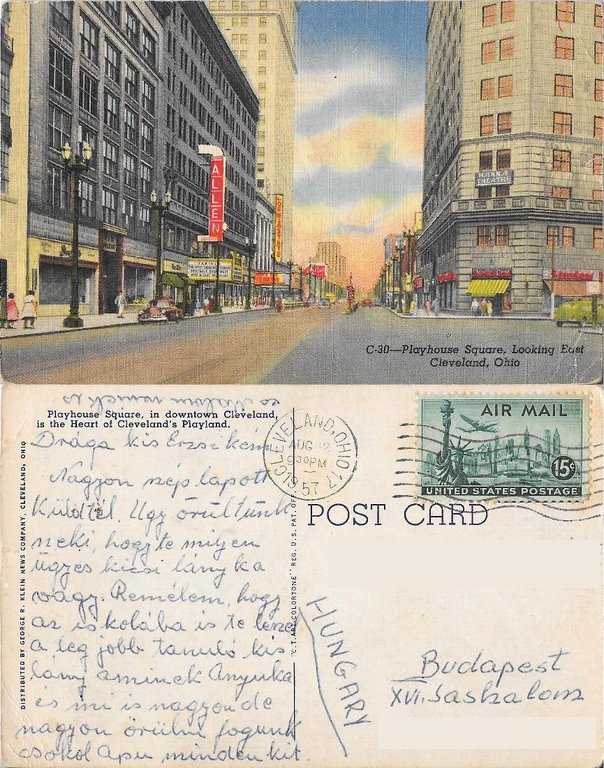 ALLEN
HANNA
THEATRE
C-30—Playhouse Square, Looking East
Cleveland, Ohio
Playhouse Square, in downtown Cleveland,
is the Heart of Cleveland's Playland.
Drága kis Erzsikém
Nagyon szép lapott
Küldtél. Ugy örültünk
neki, hogy te milyen
ügyes kicsi lányka
vagy. Remélem, hogy
az iskolába is te leszel
a leg jobb tanuló kis
lány aminek Anyuka
és mi is nagyon de
nagyon örülni fogunk
csokol Apu mindenkit.
DISTRIBUTED BY GEORGE R. KLEIN NEWS COMPANY, CLEVELAND, OHIO
"C.T. ART-COLORTONE" REG. U.S. PAT. OFF.
CLEVELAND, OHIO 17
AUG 2
930PM
57
AIR MAIL
15¢
UNITED STATES POSTAGE
POST CARD
HUNGARY
Budapest
XVI. Sashalom